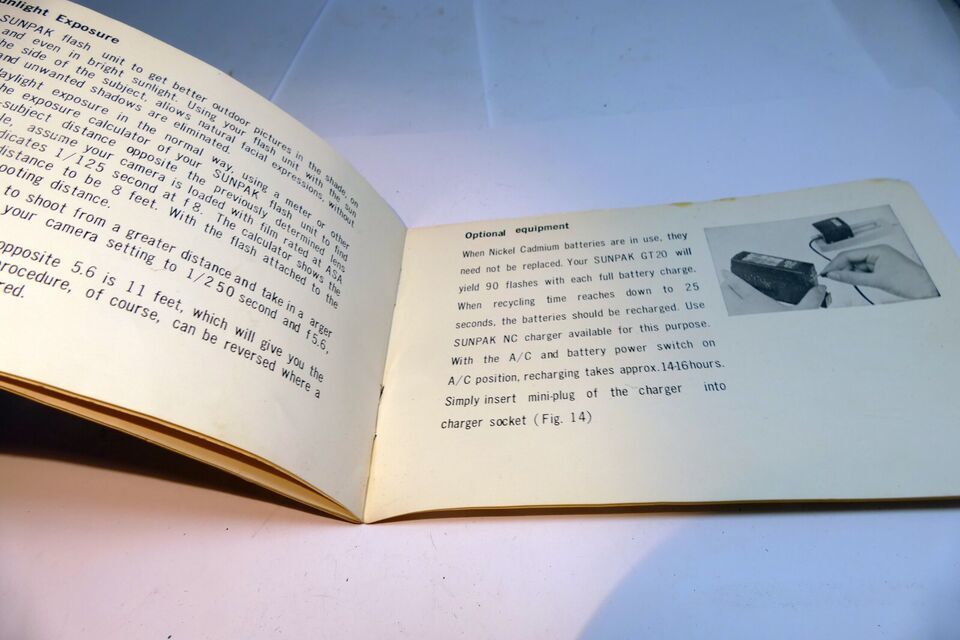 unlight Exposure
SUNPAK flash unit to get better outdoor pictures in the shade, on
and even in bright sunlight. Using your flash unit with the sun
he side of the subject, allows natural facial expressions, without
and unwanted shadows are eliminated.
daylight exposure in the normal way, using a meter or other
he exposure calculator of your SUNPAK flash unit to find
-subject distance opposite the previously determined lens
le, assume your camera is loaded with film rated at ASA
dicates 1/125 second at f8. The calculator shows the
distance to be 8 feet. With the flash attached to the
ooting distance.
to shoot from a greater distance and take in a arger
your camera setting to 1/250 second and f5.6,
opposite 5.6 is 11 feet, which will give you the
rocedure, of course, can be reversed where a
red.
Optional equipment
When Nickel Cadmium batteries are in use, they
need not be replaced. Your SUNPAK GT20 will
yield 90 flashes with each full battery charge.
When recycling time reaches down to 25
seconds, the batteries should be recharged. Use
SUNPAK NC charger available for this purpose.
With the A/C and battery power switch on
A/C position, recharging takes approx. 14-16hours.
Simply insert mini-plug of the charger into
charger socket (Fig. 14)